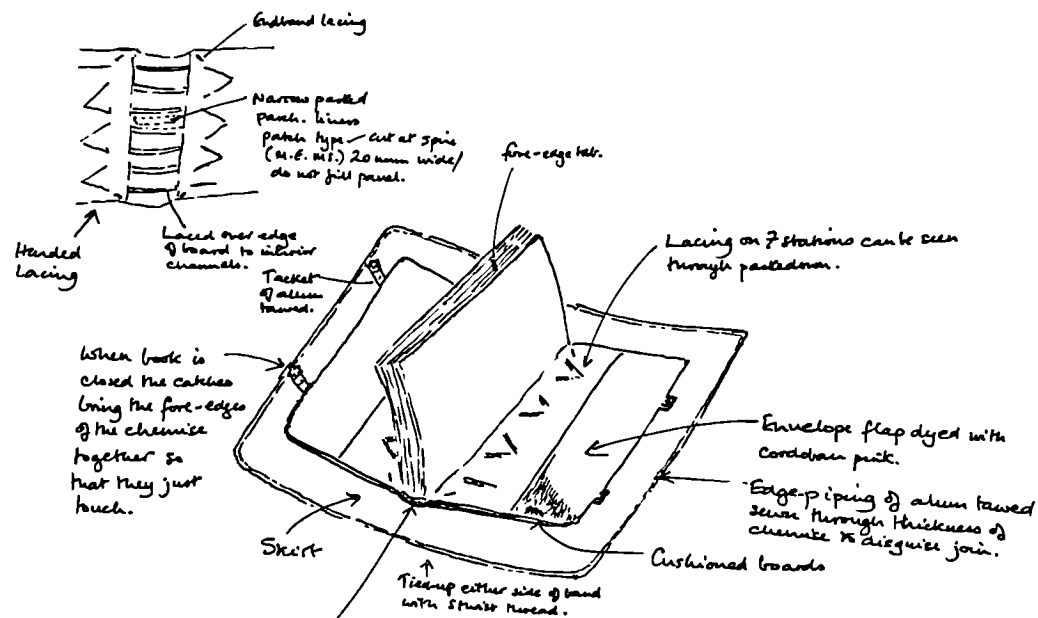 Endband lacing
Narrow pasted
parch. liners
patch type - cut at spine
(M.E. MS.) 20 mm wide/
do not fill panel.
fore-edge tab.
Headed
Lacing
Laced over edge
of board to interior
channels.
Tacket
of alum
tawed.
Lacing on 7 stations can be seen
through pastedown.
When book is
closed the catches
bring the fore-edges
of the chemise
together so
that they just
touch.
Envelope flap dyed with
cordoban pink.
Edge-piping of alum tawed
sewn through thickness of
chemise to disguise join.
Skirt
Cushioned boards
Tied-up either side of band
with thread.